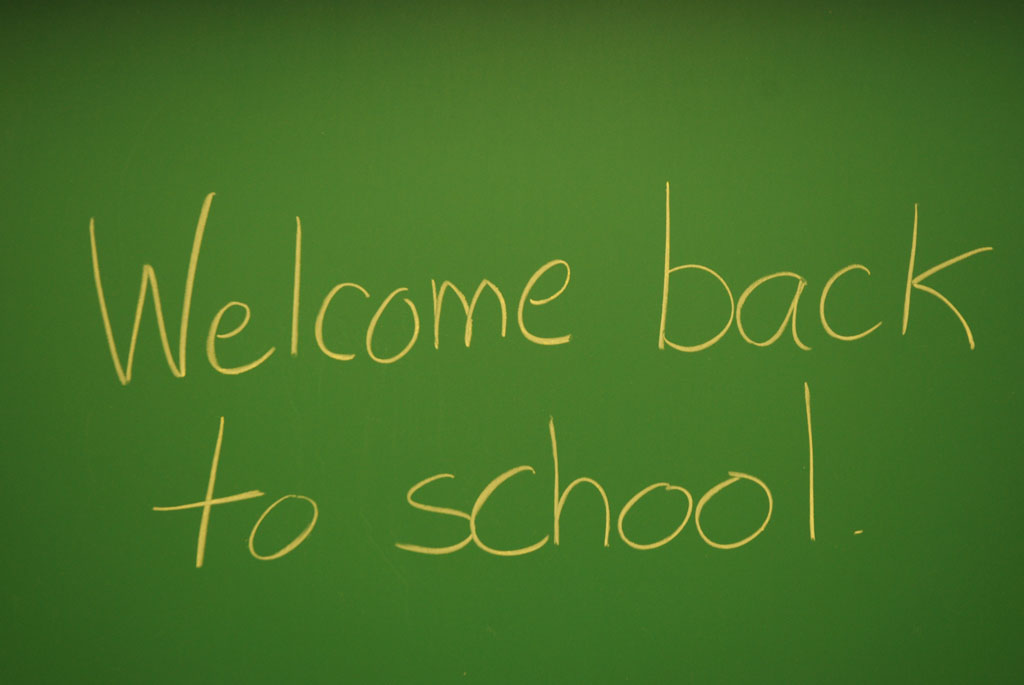 Welcome back
to school.